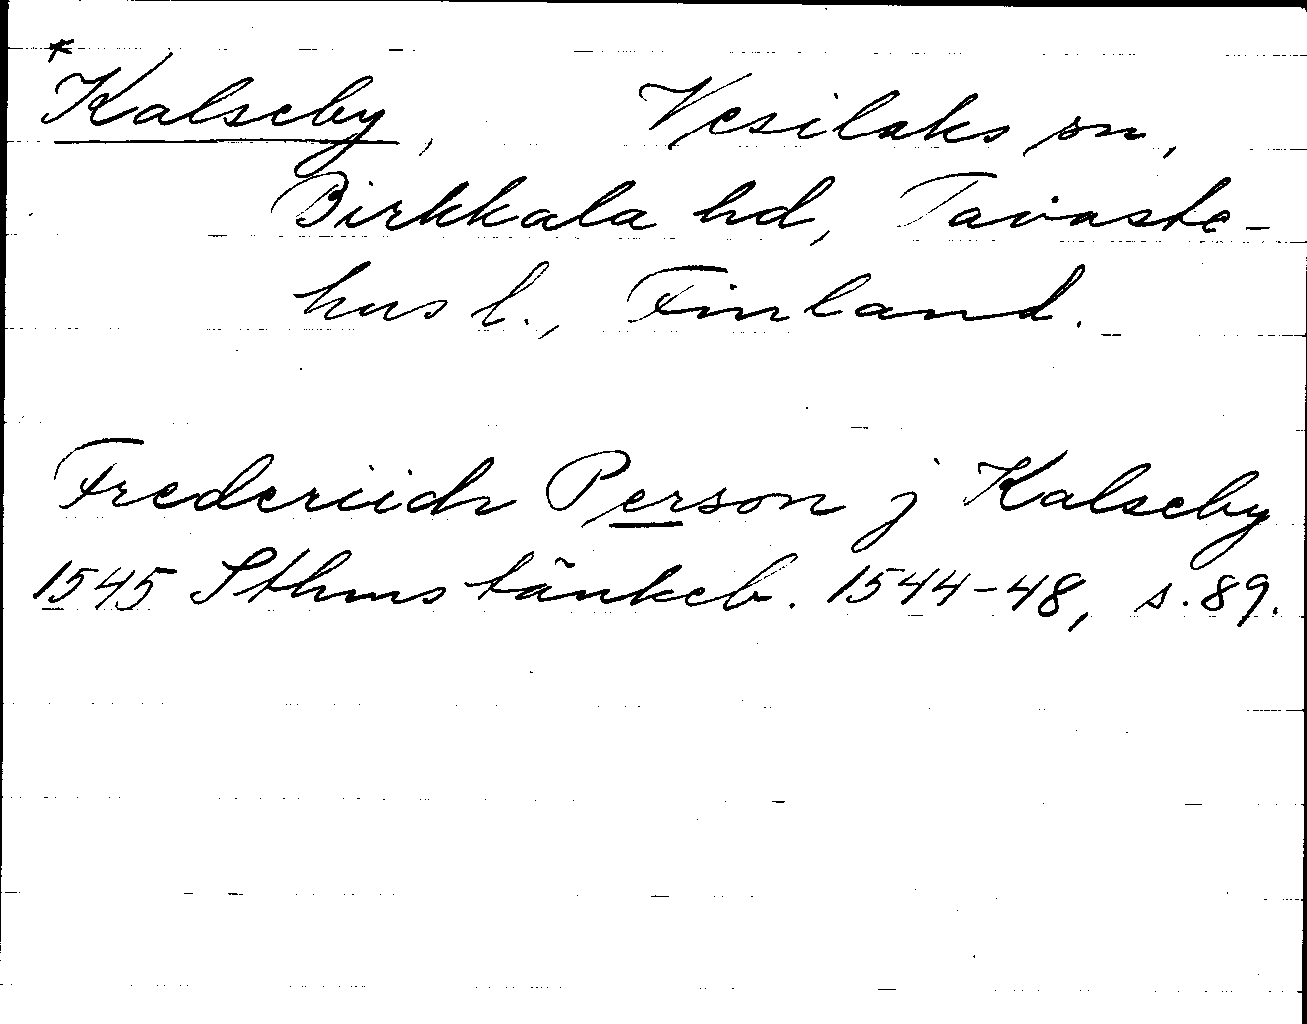 *Kalseby, Vesilaks sn,
Birkkala hd, Tavaste-
hus l., Finland.
Frederiich Person j Kalseby
1545 Sthms tänkeb. 1544-48, s. 89.